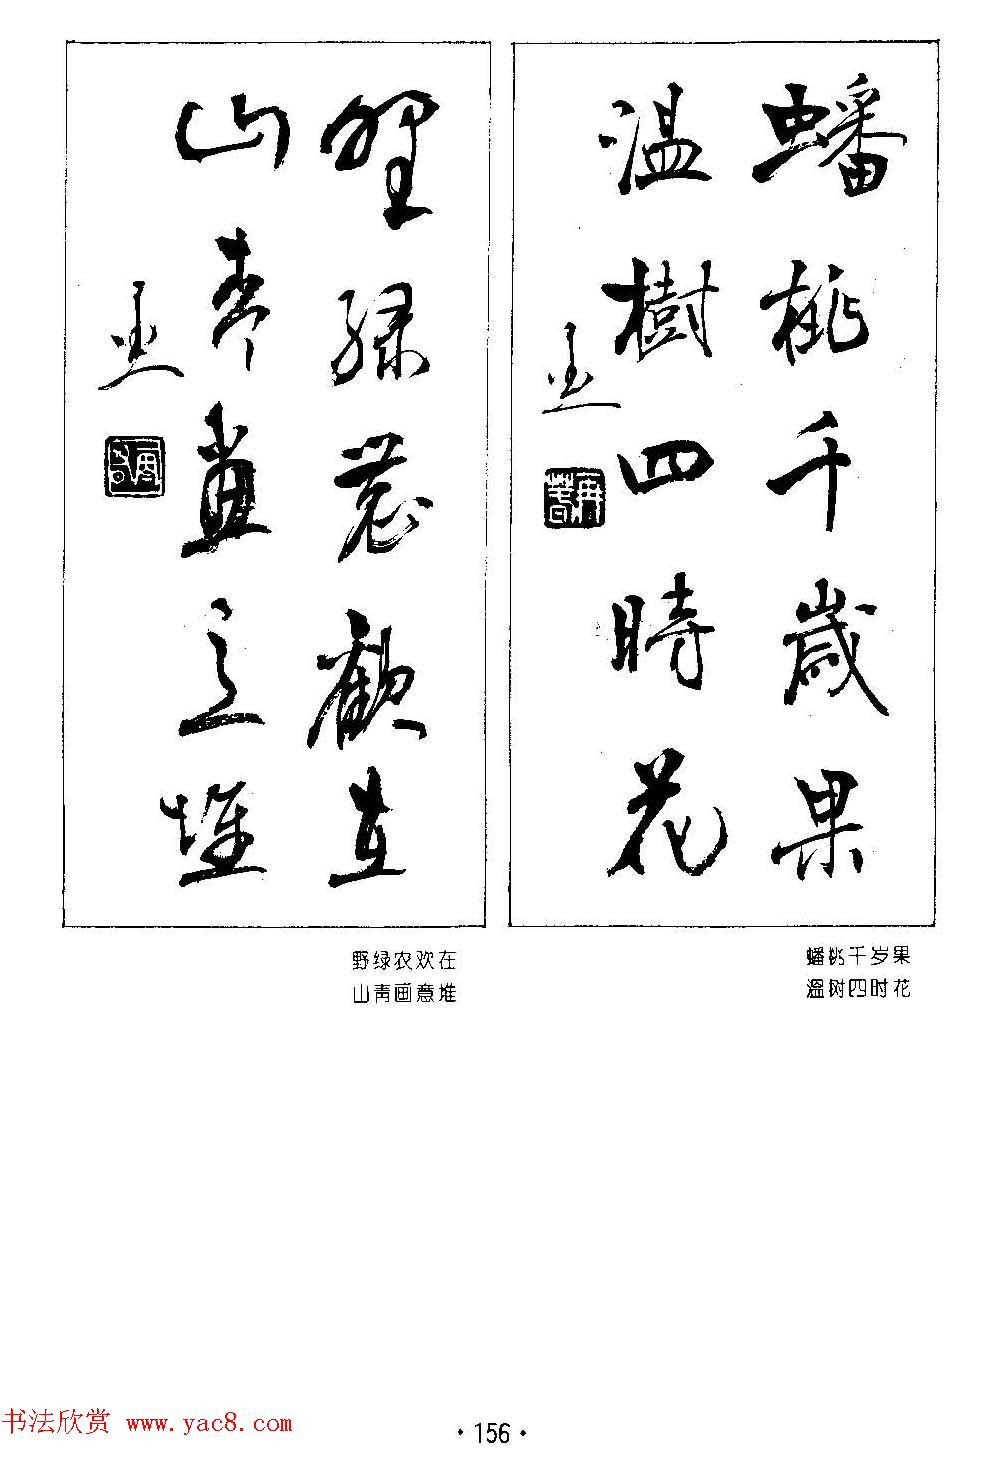 蟠桃千歲果
溫樹四時花
野綠農歡在
山青畫意堆
蟠桃千岁果
温树四时花
野绿农欢在
山青画意堆
书法欣赏 www.yac8.com
·156·